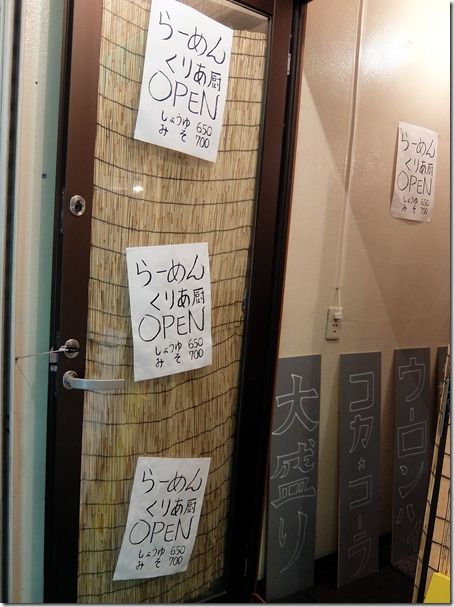 らーめん
くりあ厨
OPEN
しょうゆ 650
みそ 700
らーめん
くりあ厨
OPEN
しょうゆ 650
みそ 700
らーめん
くりあ厨
OPEN
しょうゆ 650
みそ 700
らーめん
くりあ厨
OPEN
しょうゆ 650
みそ 700
大盛り
コカ☆コーラ
ウーロンハイ